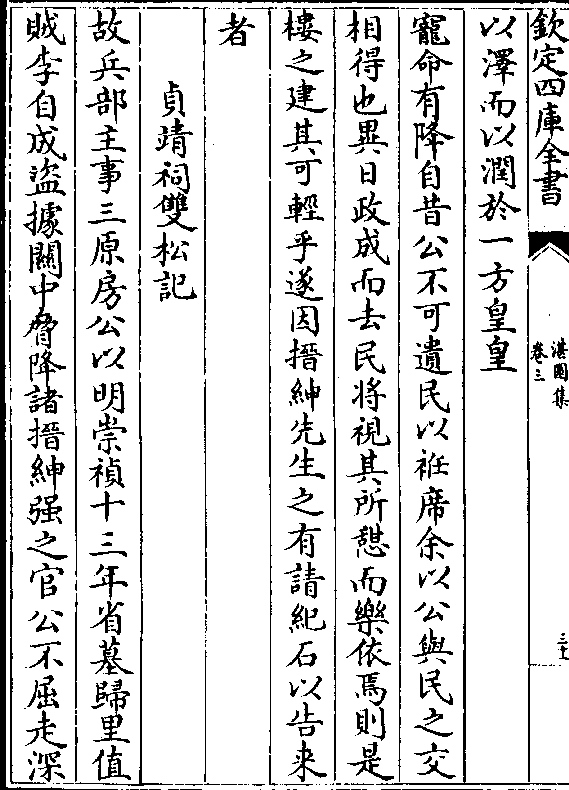 欽定四庫全書
湛園集
卷三
三十
以澤而以潤於一方皇皇
寵命有降自昔公不可遺民以袵席余以公與民之交
相得也異日政成而去民將視其所憇而樂依焉則是
樓之建其可輕乎遂因搢紳先生之有請紀石以告来
者
貞靖祠雙松記
故兵部主事三原房公以明崇禎十三年省墓歸里值
賊李自成盜據關中脅降諸搢紳强之官公不屈走深